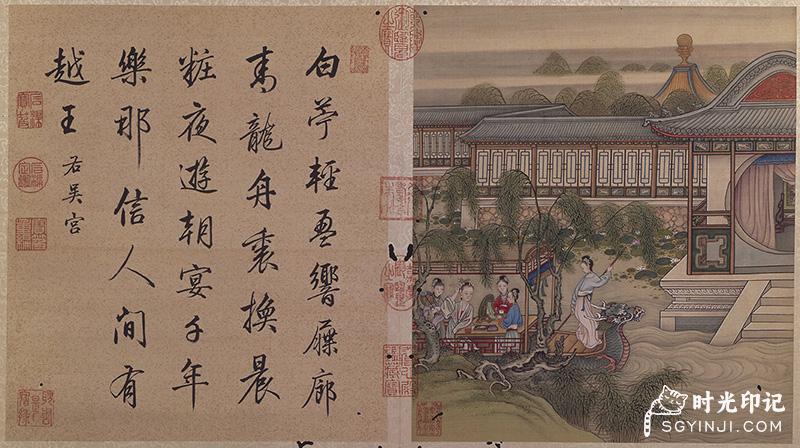 白苧輕盈響屧廊
青龍舟裏換晨
粧夜遊朝宴千年
樂那信人間有
越王 右吳宮
时光印记
SGYINJI.COM